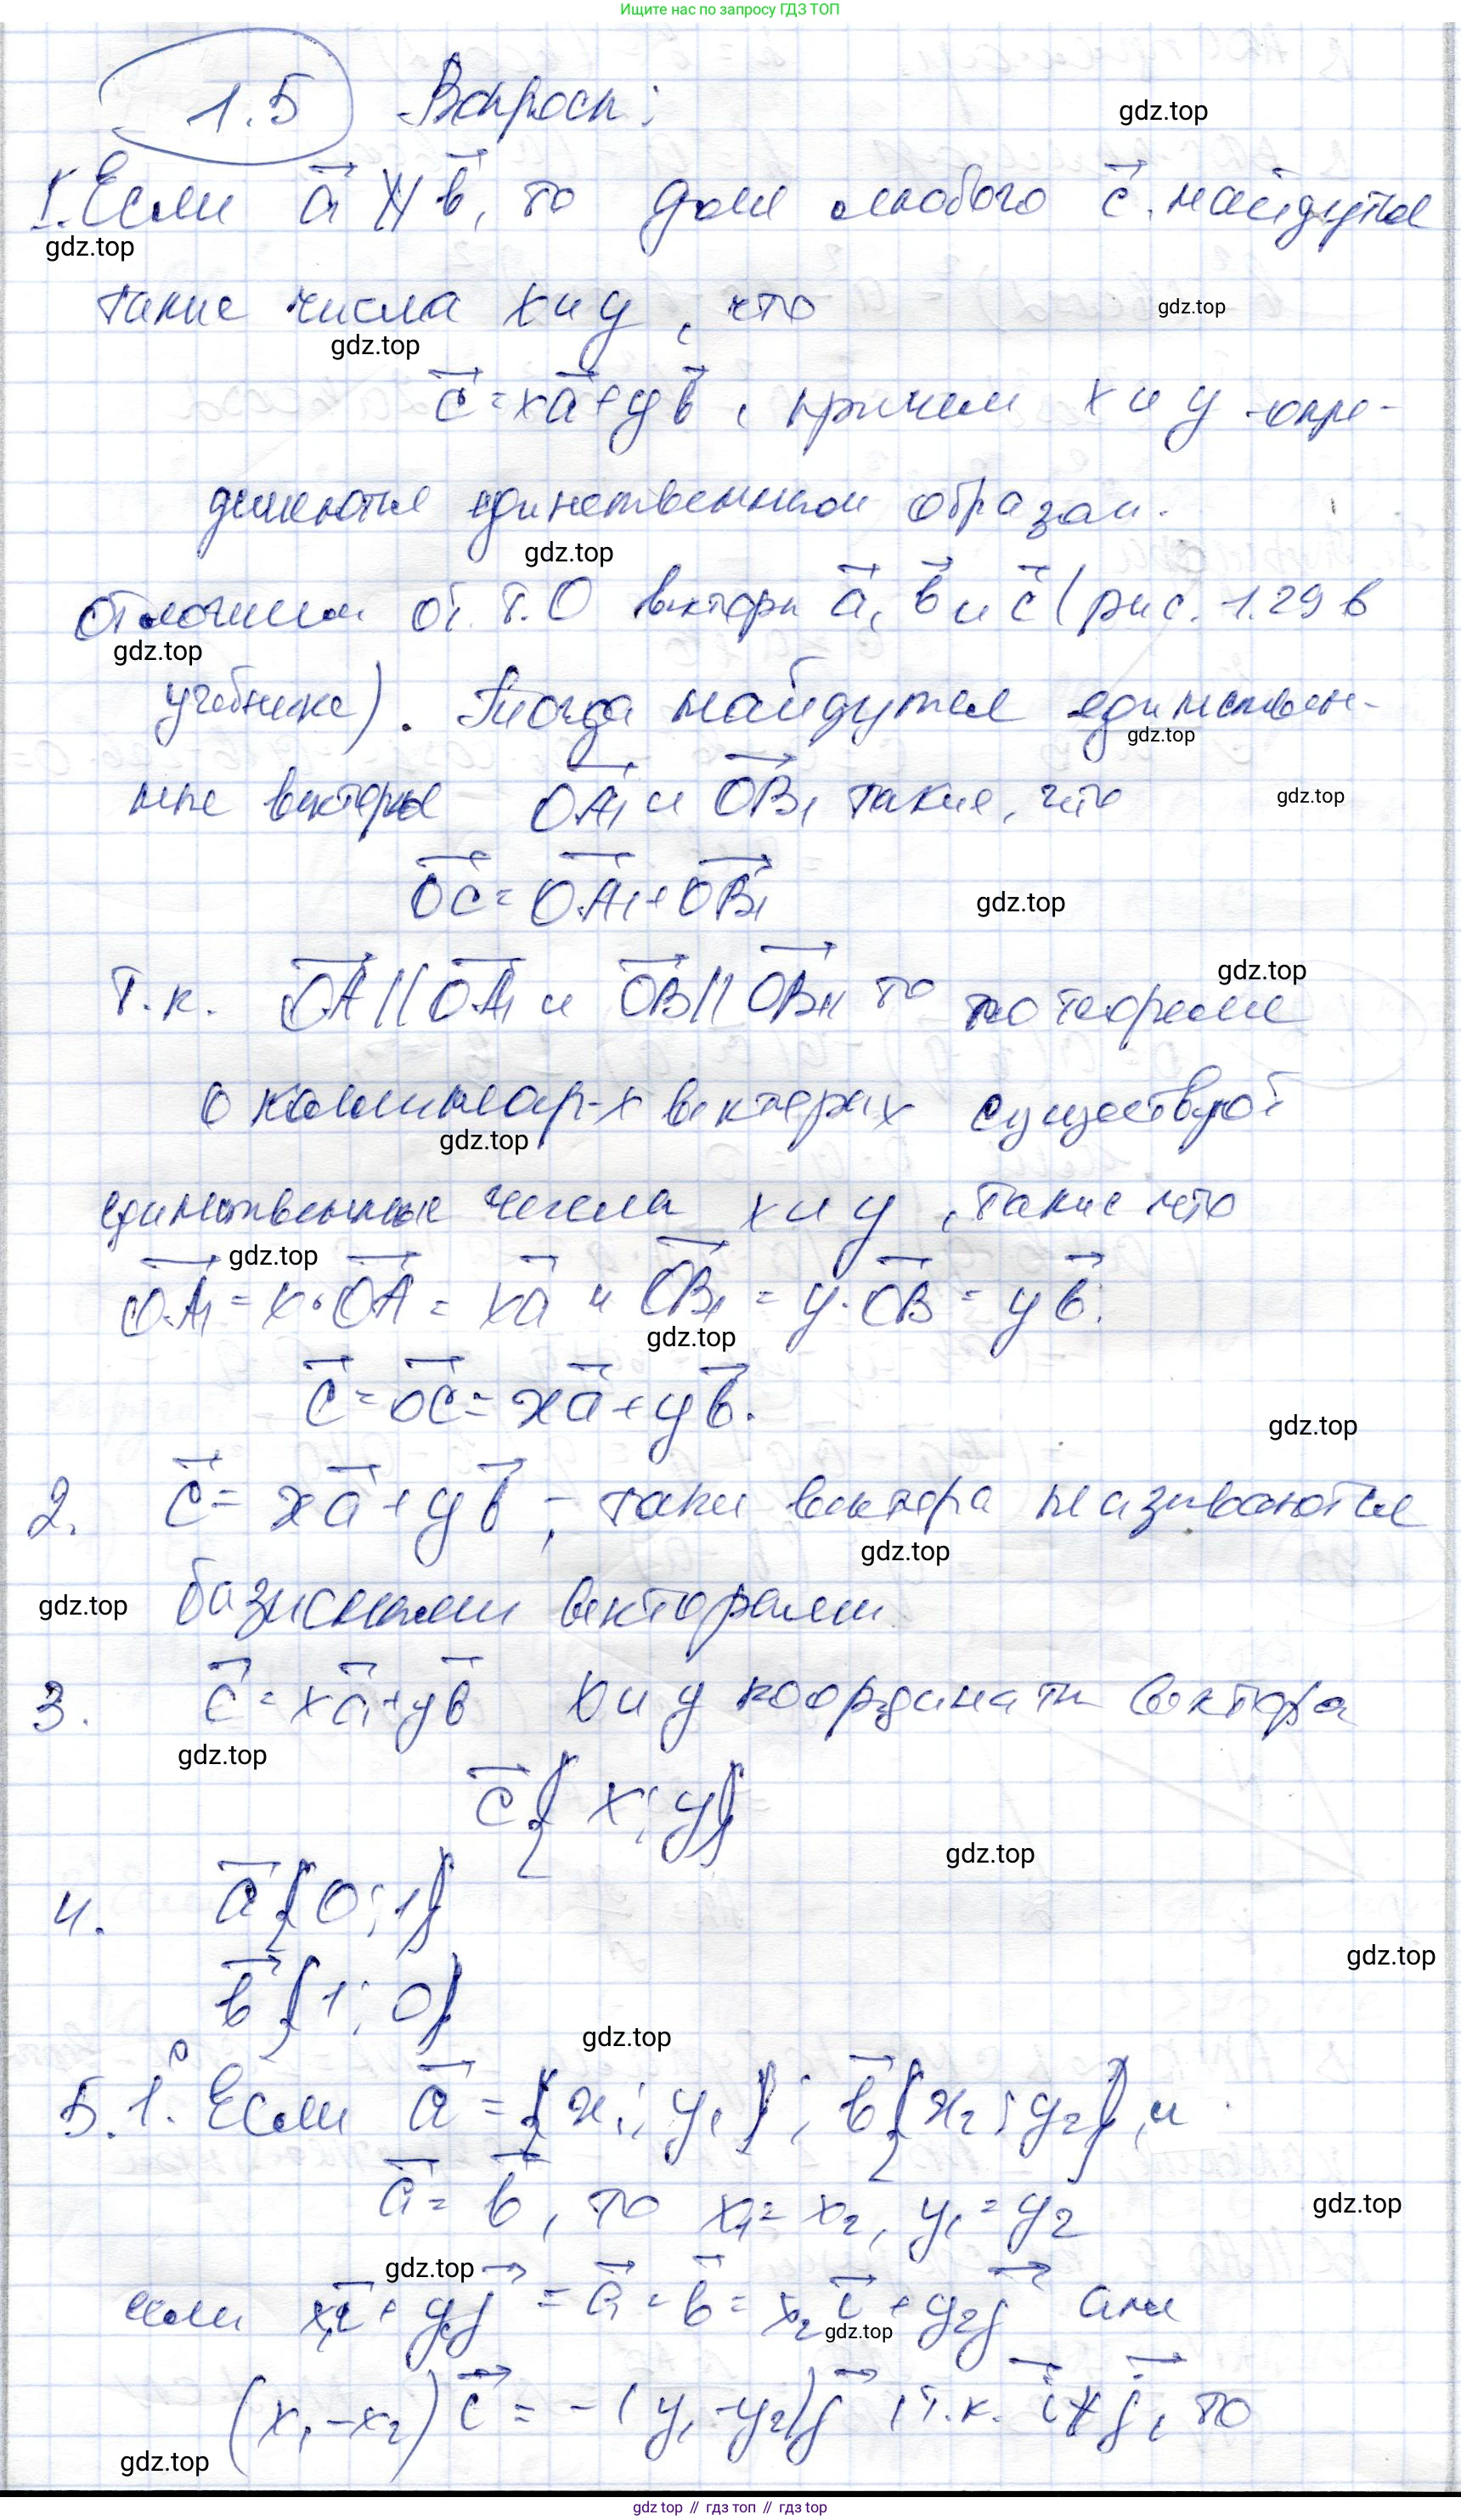 Ищите нас по запросу ГДЗ ТОП
1.5 Вопросы:
gdz.top
1. Если a⃗ ∦ b⃗, то для любого c⃗ найдутся
gdz.top
такие числа x и y, что
gdz.top
gdz.top
c⃗ = xa⃗ + yb⃗, причем x и y опре-
деляются единственным образом.
gdz.top
Отложим от т. O векторы a⃗, b⃗ и c⃗ (рис. 1.29 в
gdz.top
учебнике). Тогда найдутся единствен-
gdz.top
ные векторы OA₁⃗ и OB₁⃗ такие, что
gdz.top
OC⃗ = OA₁⃗ + OB₁⃗
gdz.top
gdz.top
Т.к. OA⃗ || OA₁⃗ и OB⃗ || OB₁⃗, то по теореме
о коллинеар-х векторах существуют
gdz.top
единственные числа x и y, такие что
gdz.top
OA₁⃗ = x·OA⃗ = xa⃗ и OB₁⃗ = y·OB⃗ = yb⃗.
gdz.top
c⃗ = OC⃗ = xa⃗ + yb⃗.
gdz.top
2. c⃗ = xa⃗ + yb⃗, – таки вектора называются
gdz.top
базисными векторами
gdz.top
3. c⃗ = xa⃗ + yb⃗ x и y координаты вектора
gdz.top
c⃗{x; y}
gdz.top
4. a⃗{0; 1}
gdz.top
b⃗{1; 0}
gdz.top
5. 1°. Если a⃗ = {x₁; y₁}; b⃗{x₂; y₂}, и
a⃗ = b⃗, то x₁ = x₂, y₁ = y₂
gdz.top
gdz.top
или x₁i⃗ + y₁j⃗ = a⃗ = b⃗ = x₂i⃗ + y₂j⃗ или
gdz.top
(x₁ – x₂)c⃗ = –(y₁ – y₂)j⃗, т.к. i⃗ ∦ j⃗, то
gdz.top
gdz top // гдз топ // гдз top